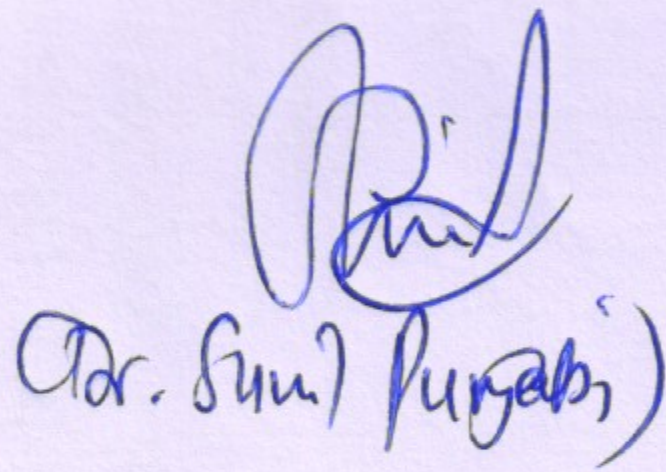 (Dr. Sunil Punjabi)